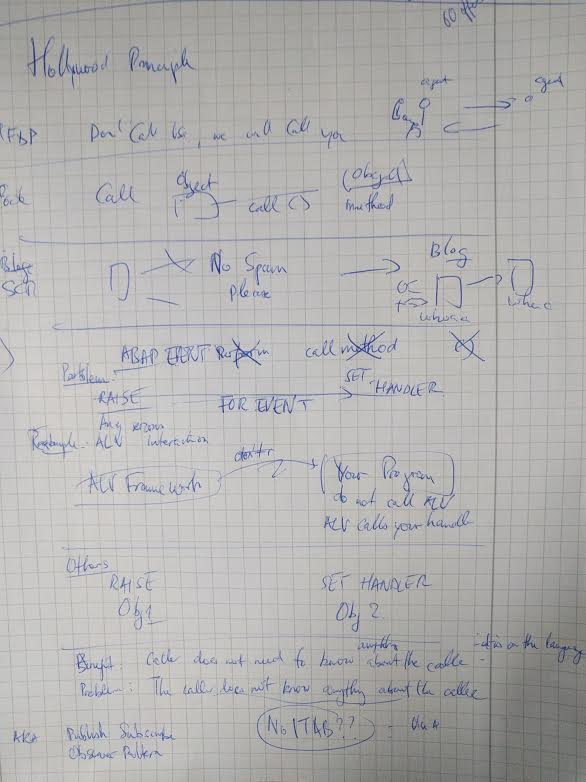 60
Hollywood Principle
agent
agent
Don't Call Us, we will Call you
Object
(Object)
Call
call ()
method
Blog
No Spam
Please
ABAP EVENT Perform call method
SET HANDLER
RAISE
FOR EVENT
Any reason
Example: ALV Interaction
ALV Framework
Your Program
do not call ALV
ALV calls your handler
Others
RAISE
SET HANDLER
Obj 1
Obj 2
anything
- it is in the language
Benefit: Caller does not need to know about the callee -
Problem: The caller does not know anything about the callee
No ITAB ??
AKA
Publish Subscribe
Observer Pattern